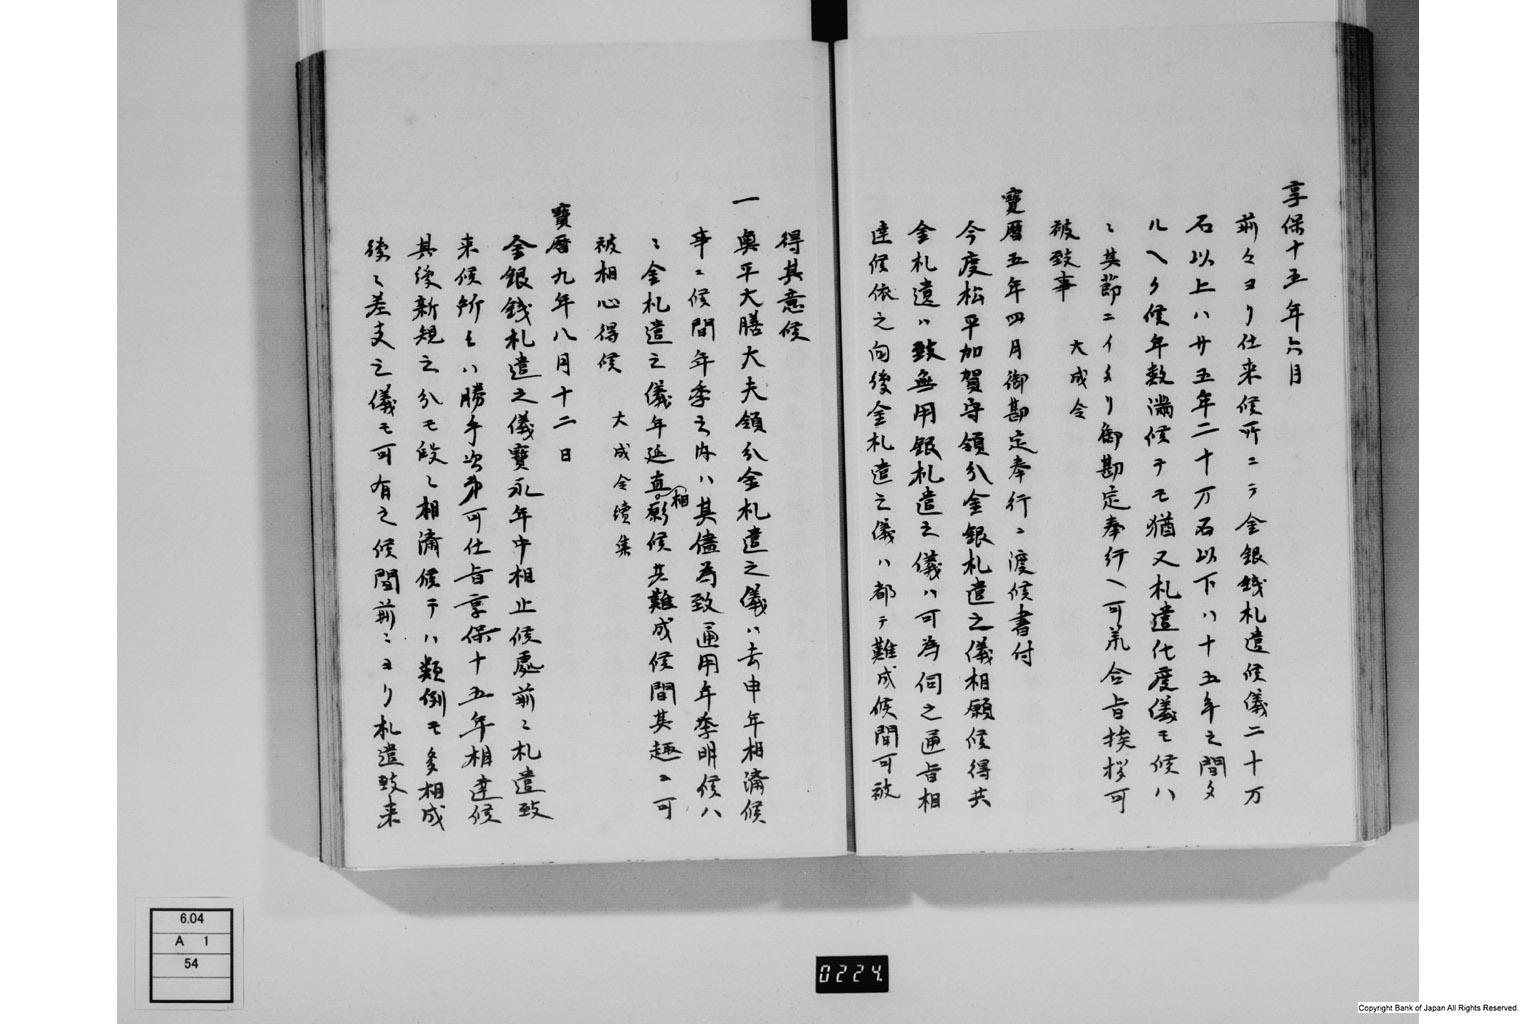 享保十五年六月
前々ヨリ仕来候所ニテ金銀銭札遣候儀二十万
石以上ハ廿五年二十万石以下ハ十五年之間タ
ルヘク候年数満候テモ猶又札遣仕度儀モ候ハ
ヽ其節ニイタリ御勘定奉行ヘ可承合旨挨拶可
被致事　大成令
寶暦五年四月御勘定奉行ニ渡候書付
今度松平加賀守領分金銀札遣之儀相願候得共
金札遣ハ致無用銀札遣之儀ハ可為伺之通旨相
達候依之向後金札遣之儀ハ都テ難成候間可被
得其意候
一奥平大膳大夫領分金札遣之儀ハ去申年相済候
事ニ候間年季之内ハ其儘為致通用年季明候ハ
ヽ金札遣之儀年延直相願候共難成候間其趣ニ可
被相心得候　大成令續集
寶暦九年八月十二日
金銀銭札遣之儀寶永年中相止候處前ニ札遣致
来候所々ハ勝手次第可仕旨享保十五年相達候
其後新規之分モ段ニ相済候テハ類例モ多相成
後ニ差支之儀モ可有之候間前ニヨリ札遣致来
6.04
A 1
54
0224.
Copyright Bank of Japan All Rights Reserved.